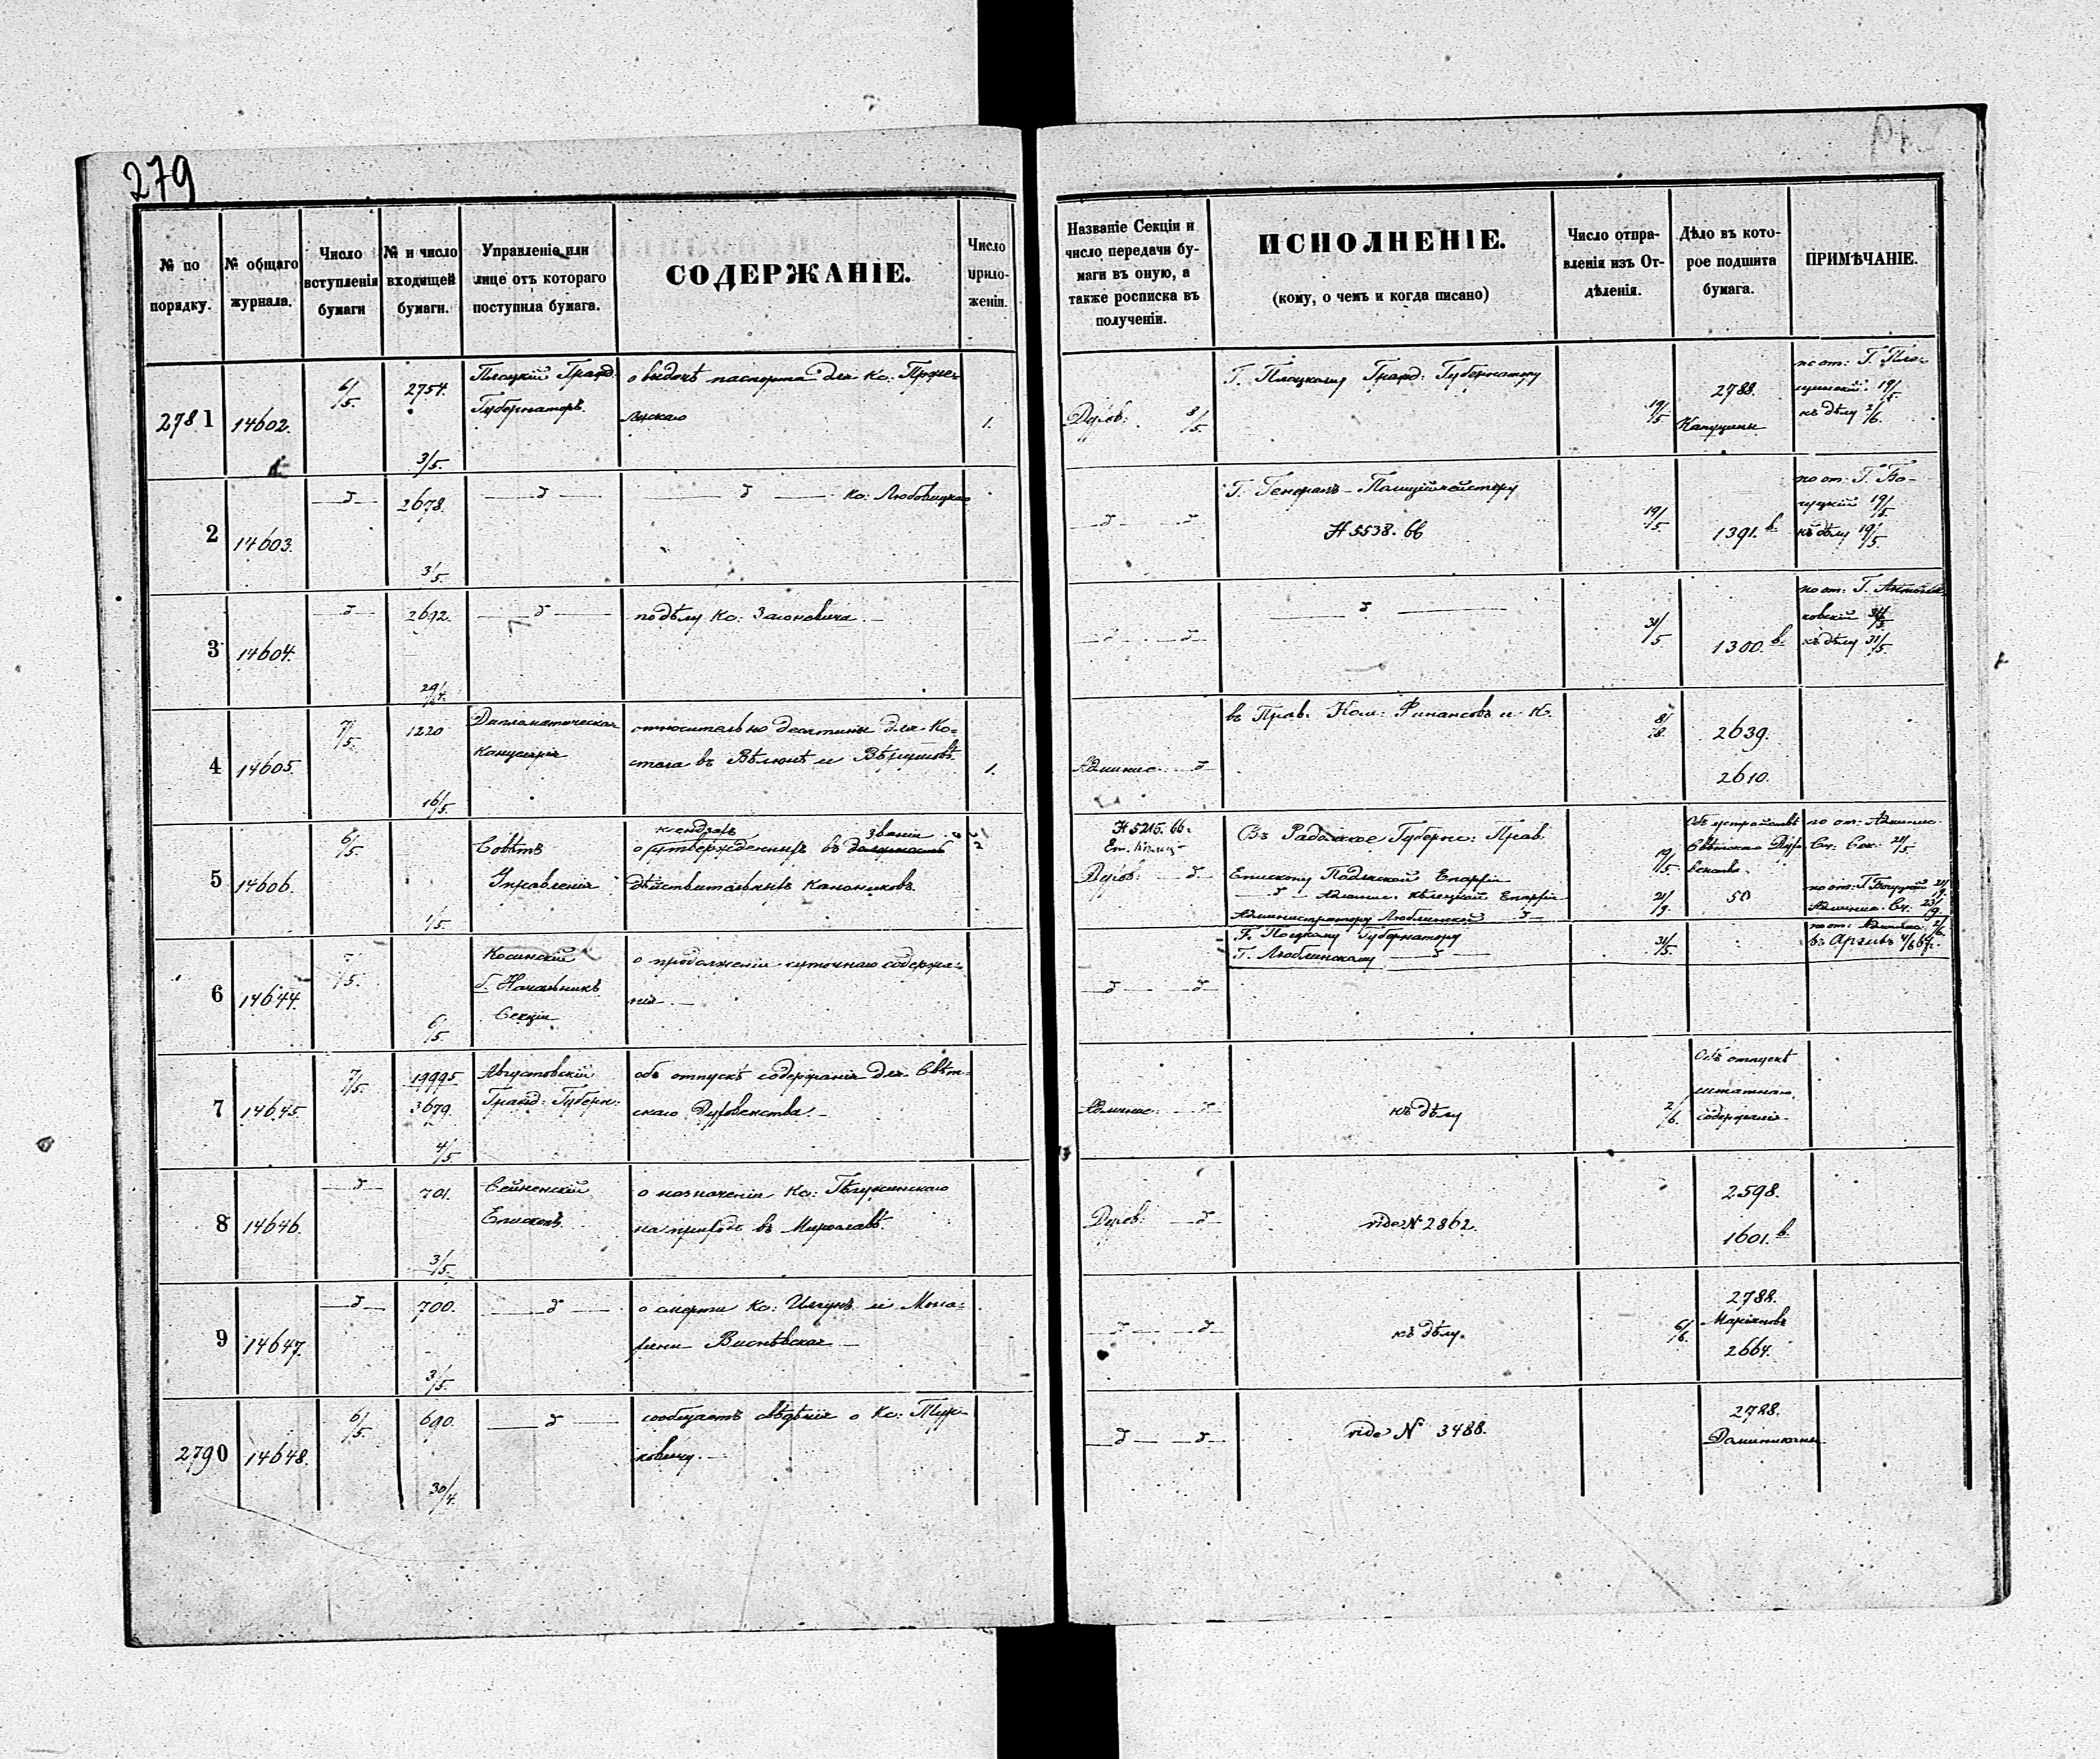 279
№ по порядку.
№ общаго журнала.
Число вступленія бумаги
№ и число входящей бумаги.
Управленіе или лице отъ котораго поступила бумага.
СОДЕРЖАНІЕ.
Число прило- женій.
Названіе Секціи и число передачи бу- маги въ оную, а также росписка въ полученіи.
ИСПОЛНЕНІЕ.
(кому, о чемъ и когда писано)
Число отпра- вленія изъ От- дѣленія.
Дѣло въ кото- рое подшита бумага.
ПРИМѢЧАНІЕ.
2781 14602. 6/5. 2754. 3/5.
Плоцкій Гражд.
Губернаторъ.
о выдачѣ паспорта для Кс:
1.
Духов: 8/5.
Г. Плоцкому Гражд: Губернатору
19/5.
2788.
Капуцины
по от: Г.
19/5.
къ дѣлу 2/6.
2 14603. —д— 2678. 3/5.
—д—
—д— Кс: Любовицкаго
—д— —д—
Г. Генералъ-Полиціймейстеру
№ 5538. 66
19/5.
1391. в.
по от: Г. Бо-
гуцкій 19/5.
къ дѣлу 19/5.
3 14604. —д— 2692. 29/4.
—д—
по дѣлу Кс: —
—д— —д—
—д—
31/5
1300. в.
по от: Г.
31/5.
къ дѣлу 31/5.
4 14605. 7/5. 1220 16/5.
Дипломатическая
Канцелярія
относительно десятины для Ко-
стела въ Вѣлюнѣ и
1.
Админис: —д—
въ Прав. Ком: Финансовъ и К.
8/8.
2639.
2610.
5 14606. 6/5. 1/5.
Совѣтъ
Управленія
ксендзахъ званіи
о утвержденныхъ въ должность
дѣйствительныхъ Канониковъ.
№ 5215. 66.
Духов: —д—
Въ Радомское Губернс: Прав.
Епископу Подляской Епархіи
—д— Админис. Кѣлецкой Епархіи
Администратору Люблинской —д—
19/5.
21/9.
Объ устройствѣ
Свѣтскаго Духо-
венства.
50
по от: Админис.
Сч: Сек: 21/5.
по от: Г. Богуцкій 21/9.
Админис. Сч. 23/9.
6 14644. 7/5. 6/5.
Косинскій
б. Начальникъ
Секціи
о продолженіи суточнаго содержа-
нія. —
—д— —д—
Г. Плоцкому Губернатору
Г. Люблинскому —д—
31/5.
по от: 2/6.
въ Архивъ
7 14645. 7/5. 19995 3679. 4/5.
Августовскій
Гражд: Губерн:
объ отпускѣ содержанія для Свѣт-
скаго Духовенства. —
Админис: —д—
къ дѣлу
2/6.
Объ отпускѣ
штатнаго
содержанія.
8 14646. —д— 701. 3/5.
Сейненскій
Епископъ
о назначеніи Кс:
на приходъ въ Мирославѣ.
Духов: —д—
vide № 2862.
2598.
1601. в.
9 14647. —д— 700. 3/5.
—д—
о смерти Кс: и Мона-
хини Виснѣвская —
—д— —д—
къ дѣлу.
6/6.
2788.
Маріяновъ
2664.
2790 14648. 6/5. 690. 30/4.
—д—
сообщаетъ свѣдѣнія о Кс:
—
—д— —д—
vide № 3488.
2788.
Доминиканы